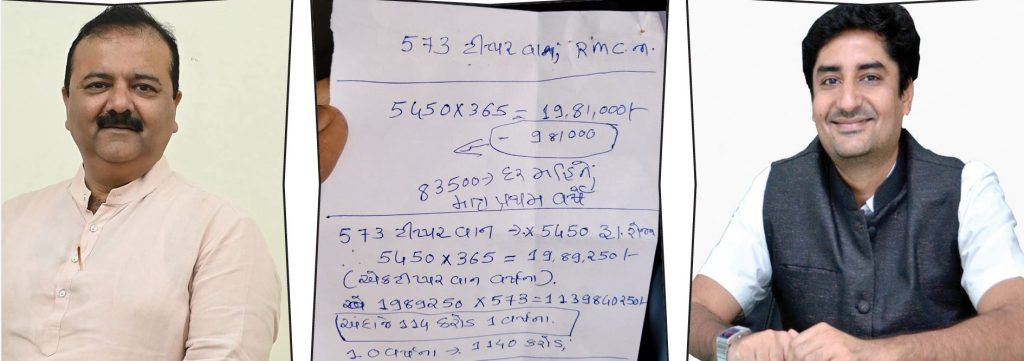 573 ટીપ્પર વાન, RMC ના.
5450X365 = 19,81,000/-
- 981000
83500 → દર મહિને
માત્ર પ્રથમ વર્ષે
573 ટીપ્પર વાન → X 5450 રૂા. રોજના
∴ 5450 X 365 = 19,89,250/-
(એક ટીપ્પર વાન વર્ષના).
1989250 X 573 = 1139840250/-
અંદાજે 114 કરોડ 1 વર્ષના.
10 વર્ષના → 1140 કરોડ,